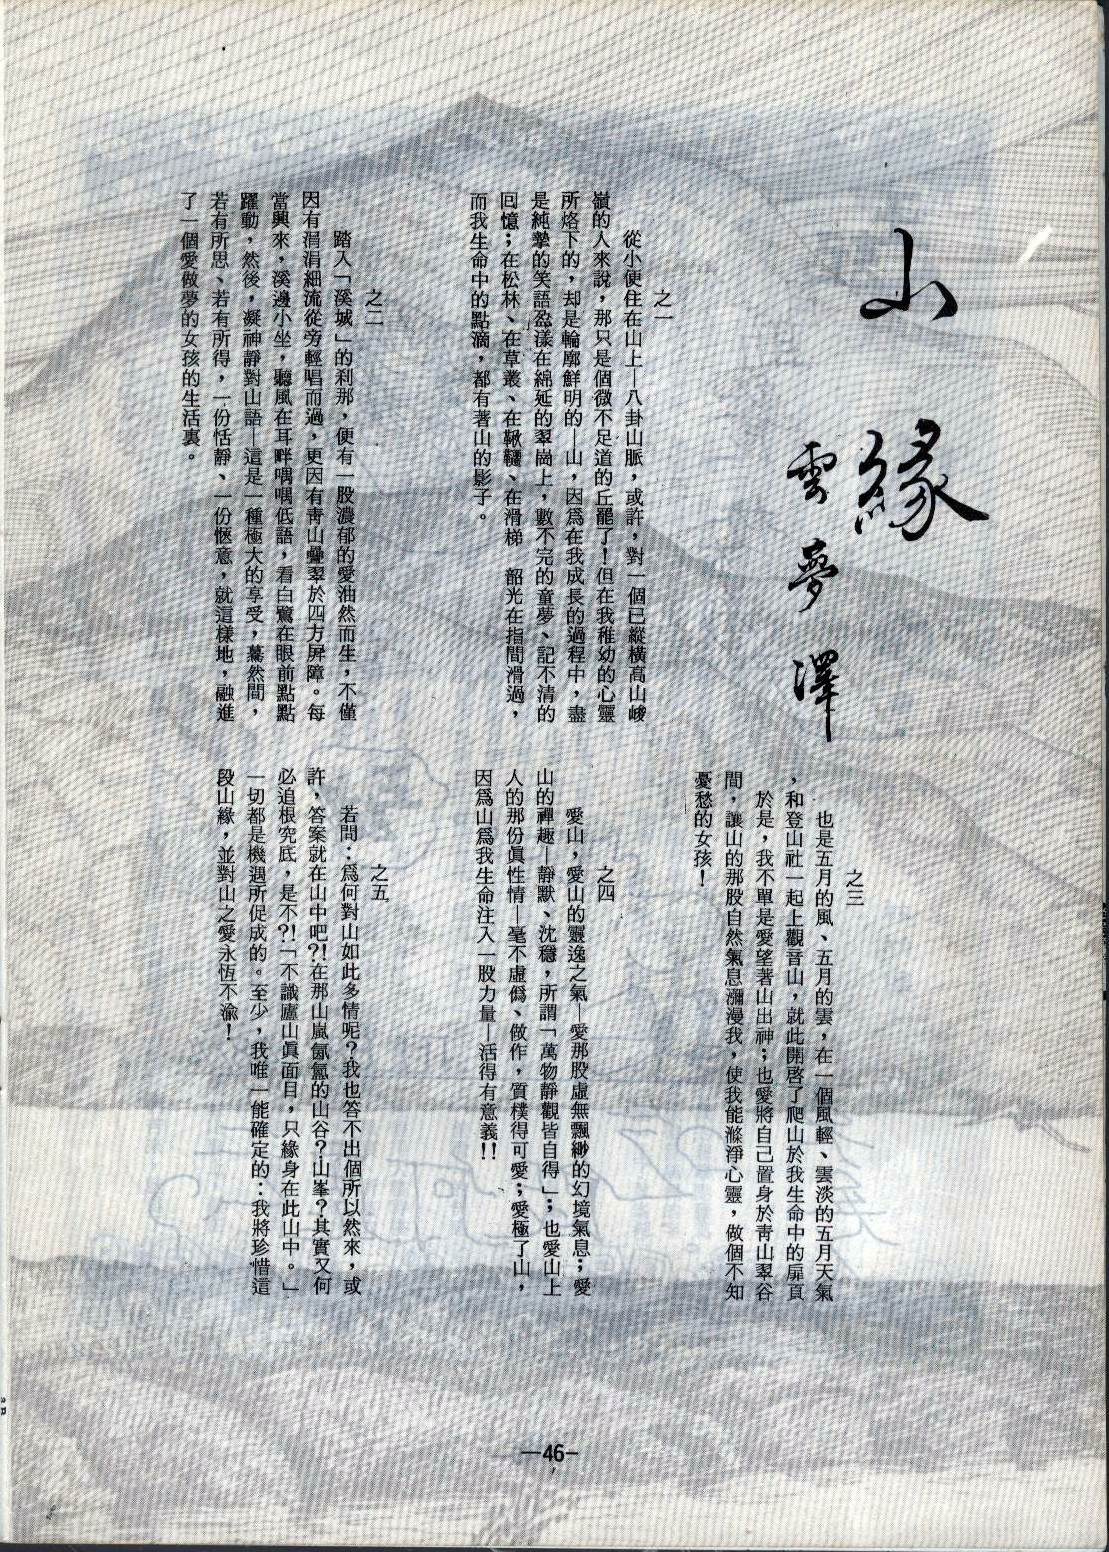 山緣
雲夢澤
之一
從小便住在山上—八卦山脈，或許，對一個已縱橫高山峻
嶺的人來說，那只是個微不足道的丘罷了！但在我稚幼的心靈
所烙下的，却是輪廓鮮明的—山，因爲在我成長的過程中，盡
是純摯的笑語盈漾在綿延的翠崗上，數不完的童夢、記不清的
回憶；在松林、在草叢、在鞦韆、在滑梯　韶光在指間滑過，
而我生命中的點滴，都有著山的影子。
之二
踏入「溪城」的刹那，便有一股濃郁的愛油然而生，不僅
因有涓涓細流從旁輕唱而過，更因有靑山疊翠於四方屛障。每
當興來，溪邊小坐，聽風在耳畔喁喁低語，看白鷺在眼前點點
躍動，然後，凝神靜對山語—這是一種極大的享受，驀然間，
若有所思、若有所得，一份恬靜、一份愜意，就這樣地，融進
了一個愛做夢的女孩的生活裏。
之三
也是五月的風、五月的雲，在一個風輕、雲淡的五月天氣
，和登山社一起上觀音山，就此開啓了爬山於我生命中的扉頁
於是，我不單是愛望著山出神；也愛將自己置身於靑山翠谷
間，讓山的那股自然氣息瀰漫我，使我能滌淨心靈，做個不知
憂愁的女孩！
之四
愛山，愛山的靈逸之氣—愛那股虛無飄緲的幻境氣息；愛
山的禪趣—靜默、沈穩，所謂「萬物靜觀皆自得」；也愛山上
人的那份眞性情—毫不虛僞、做作，質樸得可愛；愛極了山，
因爲山爲我生命注入一股力量—活得有意義！！
之五
若問：爲何對山如此多情呢？我也答不出個所以然來，或
許，答案就在山中吧？！在那山嵐氤氳的山谷？山峯？其實又何
必追根究底，是不？！「不識廬山眞面目，只緣身在此山中。」
一切都是機遇所促成的。至少，我唯一能確定的：我將珍惜這
段山緣，並對山之愛永恆不渝！
—46—